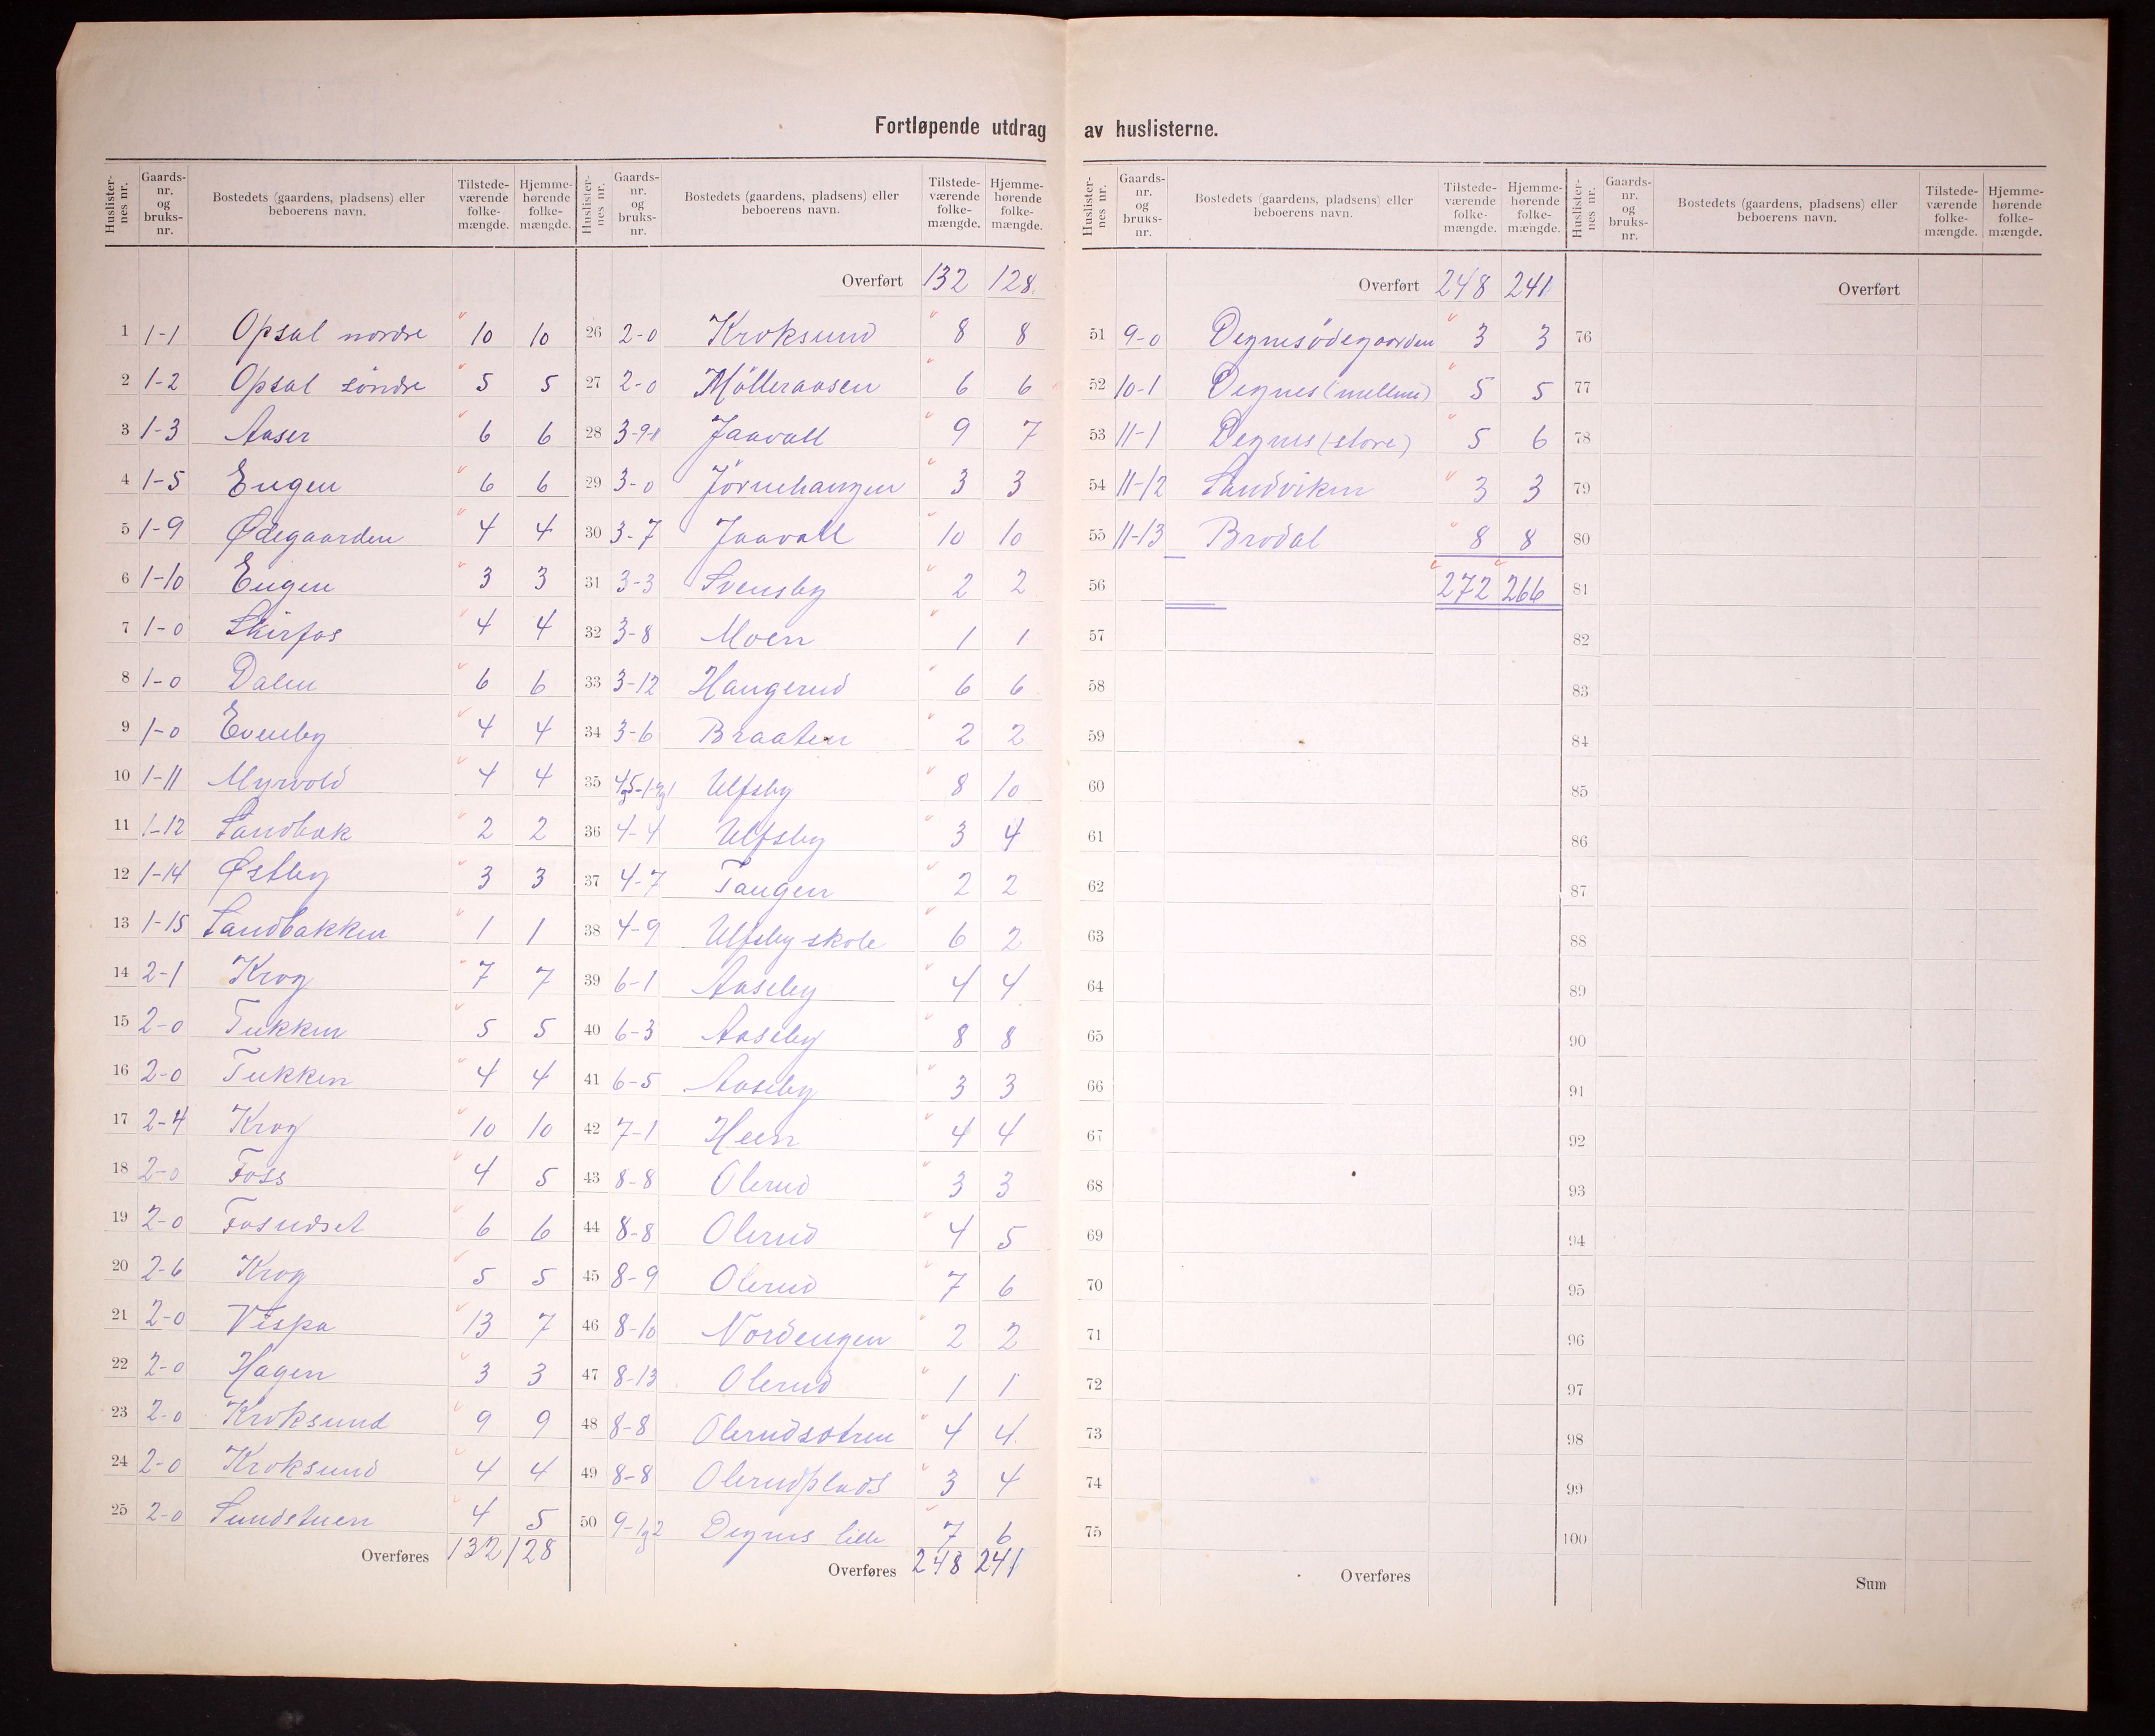 Fortløpende utdrag av huslisterne.
Huslisternes nr. Gaards-nr. og bruks-nr. Bostedets (gaardens, pladsens) eller beboerens navn. Tilstedeværende folkemængde. Hjemmehørende folkemængde.
1 1-1 Opsal nordre 10 10
2 1-2 Opsal söndre 5 5
3 1-3 Aaser 6 6
4 1-5 Engen 6 6
5 1-9 Ødegaarden 4 4
6 1-10 Engen 3 3
7 1-0 Skirfos 4 4
8 1-0 Dalen 6 6
9 1-0 Evenby 4 4
10 1-11 Myrvold 4 4
11 1-12 Sandbak 2 2
12 1-14 Østby 3 3
13 1-15 Sandbakken 1 1
14 2-1 Krog 7 7
15 2-0 Tukken 5 5
16 2-0 Tukken 4 4
17 2-4 Krog 10 10
18 2-0 Foss 4 5
19 2-0 6 6
20 2-6 Krog 5 5
21 2-0 Vispa 13 7
22 2-0 Hagen 3 3
23 2-0 Kroksund 9 9
24 2-0 Kroksund 4 4
25 2-0 Sundstuen 4 5
Overføres 132 128
Huslisternes nr. Gaards-nr. og bruks-nr. Bostedets (gaardens, pladsens) eller beboerens navn. Tilstedeværende folkemængde. Hjemmehørende folkemængde.
Overført 132 128
26 2-0 Kroksund 8 8
27 2-0 Mölleraasen 6 6
28 3-9-1 Jaavall 9 7
29 3-0 Jörnehaugen 3 3
30 3-7 Jaavall 10 10
31 3-3 Svensby 2 2
32 3-8 Moen 1 1
33 3-12 Haugerud 6 6
34 3-6 Braaten 2 2
35 Ulfsby 8 10
36 4-4 Ulfsby 3 4
37 4-7 Tangen 2 2
38 4-9 Ulfsby skole 6 2
39 6-1 Aaseby 4 4
40 6-3 Aaseby 8 8
41 6-5 Aaseby 3 3
42 7-1 Heen 4 4
43 8-8 Olerud 3 3
44 8-8 Olerud 4 5
45 8-9 Olerud 7 6
46 8-10 Nordengen 2 2
47 8-13 Olerud 1 1
48 8-8 4 4
49 8-8 Olerudplads 3 4
50 9-1g2 Degnes lille 7 6
Overføres 248 241
Huslisternes nr. Gaards-nr. og bruks-nr. Bostedets (gaardens, pladsens) eller beboerens navn. Tilstedeværende folkemængde. Hjemmehørende folkemængde.
Overført 248 241
51 9-0 Degnesödegaarden 3 3
52 10-1 Degnes (mellem) 5 5
53 11-1 Degnes (store) 5 6
54 11-12 Sandviken 3 3
55 11-13 Brodal 8 8
56 272 266
57
58
59
60
61
62
63
64
65
66
67
68
69
70
71
72
73
74
75
Overføres
Huslisternes nr. Gaards-nr. og bruks-nr. Bostedets (gaardens, pladsens) eller beboerens navn. Tilstedeværende folkemængde. Hjemmehørende folkemængde.
Overført
76
77
78
79
80
81
82
83
84
85
86
87
88
89
90
91
92
93
94
95
96
97
98
99
100
Sum